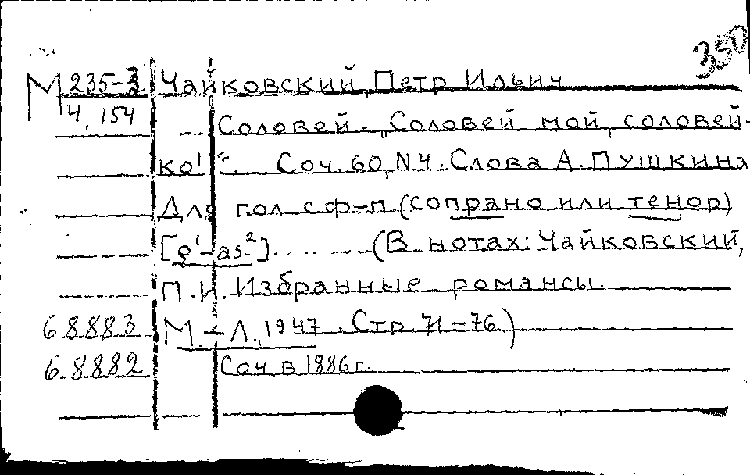 350
М 235-3 Чайковский, Петр Ильич
14, 154
Соловей. „Соловей мой, соловей-
ко!“. Соч. 60, N 4. Слова А. Пушкина
Для гол. с ф-п (сопрано или тенор)
[e¹-as²] (В нотах: Чайковский,
П. И. Избранные романсы.
68883 М.-Л., 1947. Стр. 71-76)
68882 Соч. в 1886 г.